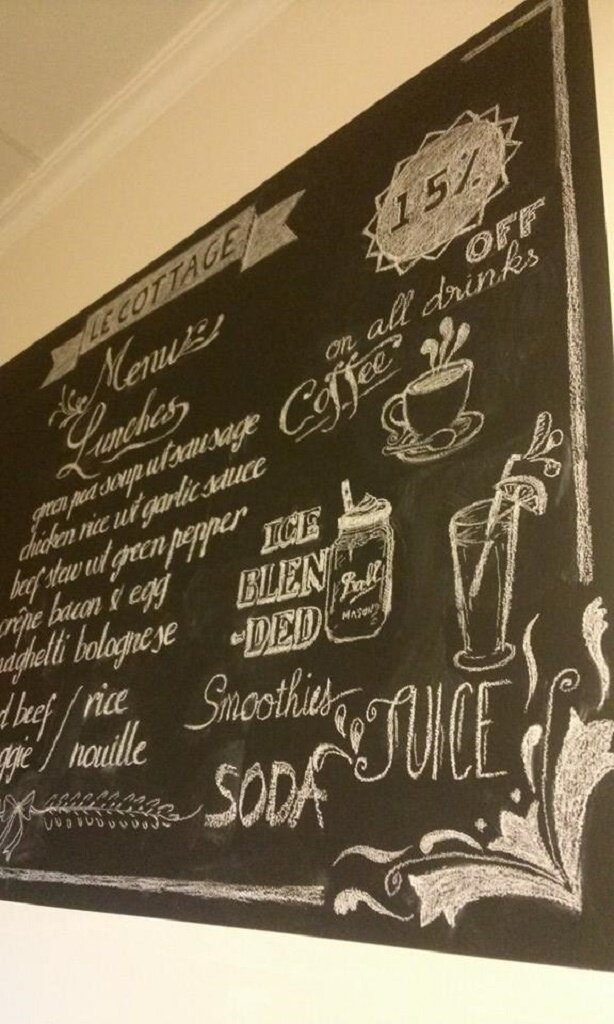 LE COTTAGE
Menu
Lunches
green pea soup wt sausage
chicken rice wt garlic sauce
beef stew wt green pepper
crêpe bacon & egg
spaghetti bolognese
beef / rice
/ nouille
15%
OFF
on all drinks
Coffee
ICE
BLEN
-DED
Ball
MASON
Smoothies
JUICE
SODA